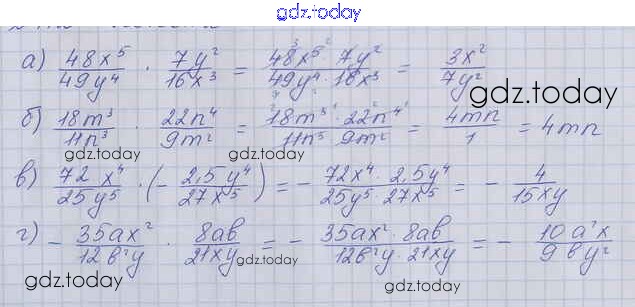 gdz.today
а) 48x⁵/49y⁴ · 7y²/16x³ = 48x⁵ · 7y²/49y⁴ · 16x³ = 3x²/7y²
gdz.today
б) 18m³/11n³ · 22n⁴/9m² = 18m³ · 22n⁴/11n³ 9m² = 4mn/1 = 4mn
gdz.today
gdz.today
в) 72x⁴/25y⁵ · (- 2,5y⁴/27x⁵) = - 72x⁴ · 2,5y⁴/25y⁵ · 27x⁵ = - 4/15xy
г) - 35ax²/12b²y · 8ab/21xy = - 35ax² · 8ab/12b²y · 21xy = - 10a²x/9by²
gdz.today
gdz.today
gdz.today